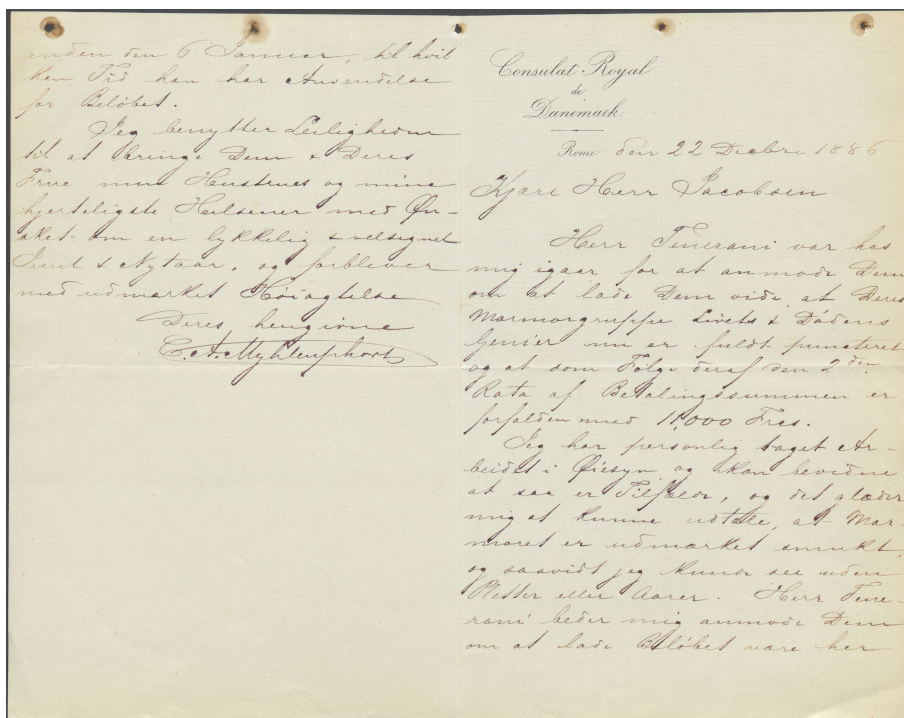 Consulat Royal
de
Danemark
Rome den 22 Decbre 1886
Kjære Herr Jacobsen
Herr Tenerani var hos
mig igaar for at anmode Dem
om at lade Dem vide, at Deres
Marmorgruppe Livets & Dødens
Genier nu er fuldt puncteret
og at som Følge deraf den 2den
Rata af Betalingssummen er
forfalden med 11,000 Frcs.
Jeg har personlig taget Ar-
beidet i Øiesyn og kan bevidne
at saa er Tilfælde, og det glæder
mig at kunne udtale, at Mar-
moret er udmærket smukt,
og saavidt jeg kunde see uden
Pletter eller Aarer. Herr Tene-
rani beder mig anmode Dem
om at lade Beløbet være her
inden den 6 Januar, til hvil
ken Tid han har Anvendelse
for Beløbet.
Jeg benytter Leiligheden
til at bringe Dem & Deres
Frue min Hustrues og mine
hjerteligste Hilsener med Øn-
sket om en lykkelig & velsignet
Juul & Nytaar, og forbliver
med udmærket Høiagtelse
Deres hengivne